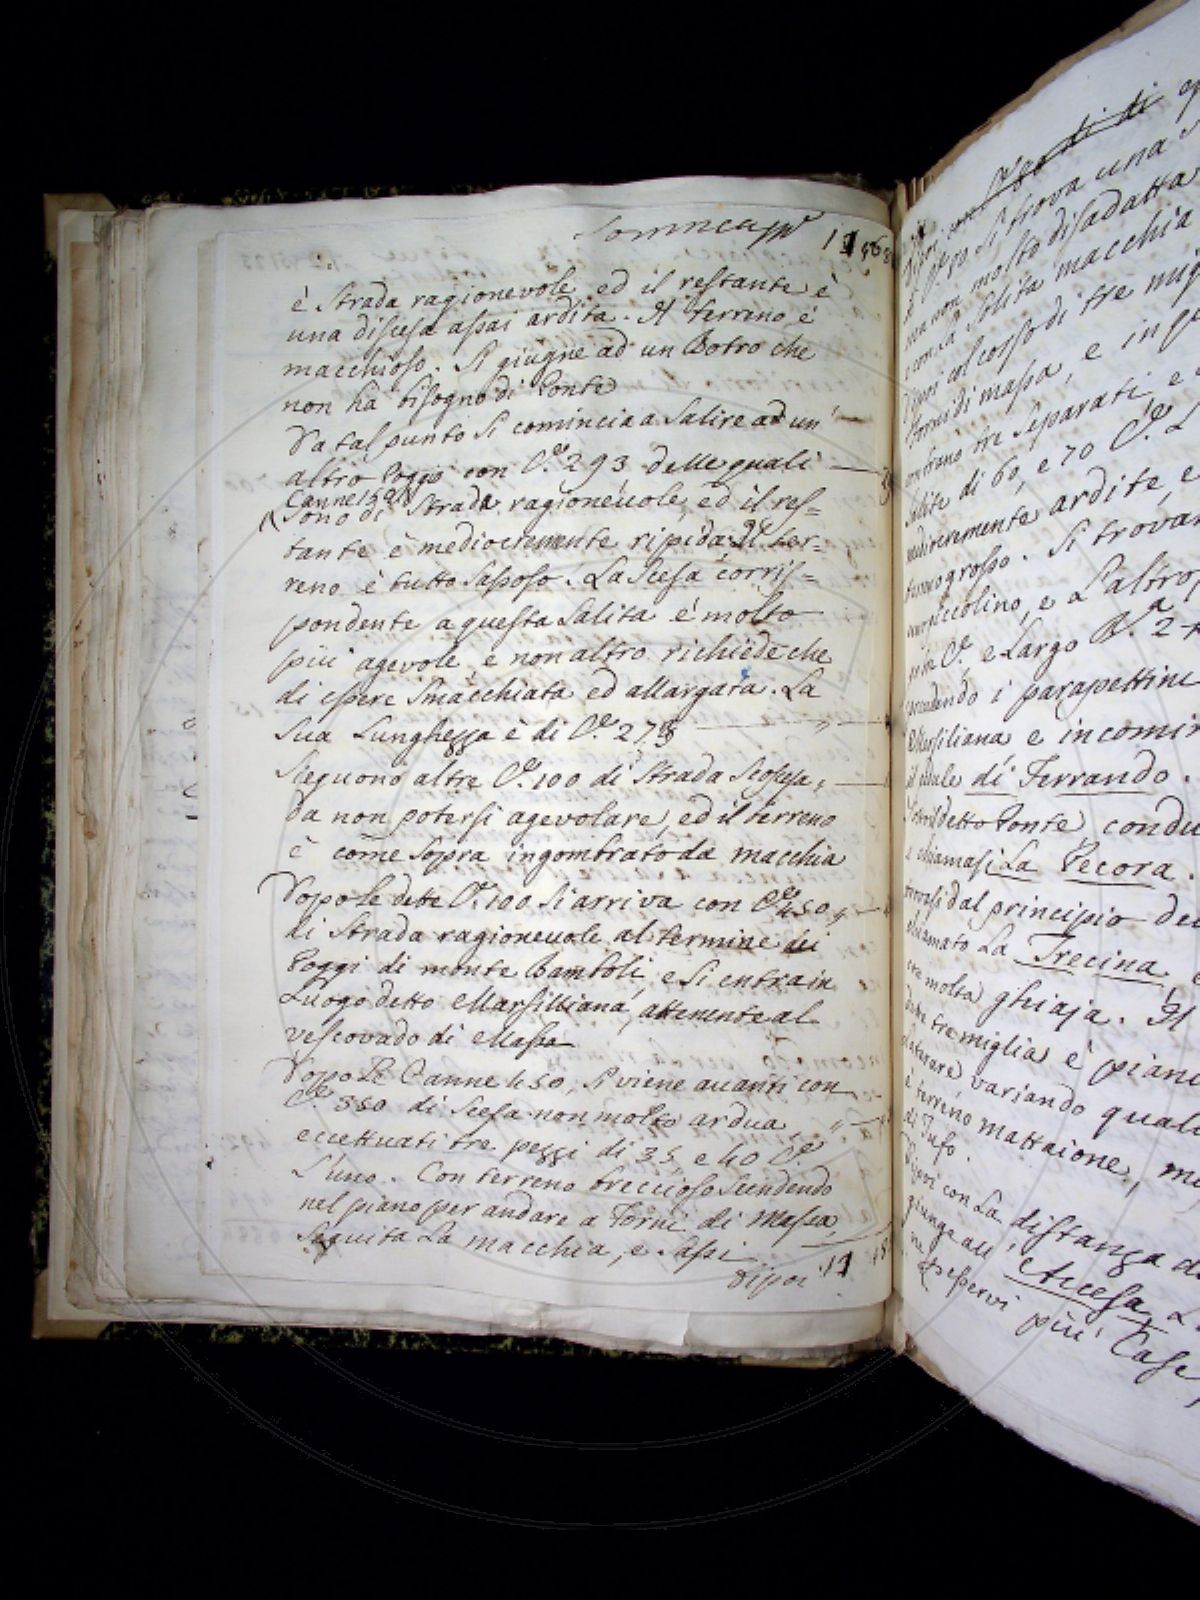 Somma
è Strada ragionevole ed il restante è
una discesa assai ardita. Il terreno è
macchioso. Si giugne ad un Botro che
non ha bisogno di Ponte
Da tal punto si comincia a Salire ad un'
altro Poggio con C.e 293 delle quali
Canne
sono di Strada ragionevole, ed il res=
tante è mediocremente ripida. Il ter=
reno è tutto Sassoso. La Scesa corris=
pondente a questa Salita è molto
più agevole e non altro richiede che
di essere Smacchiata ed allargata. La
Sua Lunghezza è di C.e
Sieguono altre C.e 100 di Strada Scoscesa,
da non potersi agevolare, ed il terreno
è come Sopra ingombrato da macchia
Dopo le dette C.e 100 Si arriva con C.e 450,,
di Strada ragionevole al termine dei
Poggi di monte Bamboli, e Si entra in
Luogo detto Marsilliana, attenente al
vescovado di Massa
Dopo Le Canne 450, Si viene avanti con
C.e 550 di Scesa non molto ardua,
eccettuati tre pezzi di 35 e 40 C.e
L'uno. Con terreno breccioso Scendendo
nel piano per andare a Forni di Massa,
Seguita La macchia, e Sassi
Dipoi
di
Si trova una
ma non molto disadatta
con La Solita macchia
Dipoi col corso di tre mig
Forni di massa, e in
tre Separati, e
Salite di 60, e 70 C.e
mediocremente ardite, e
grosso. Si trovan
piccolino, e L'altro
C.e e Largo B.a 2
i parapettini
Marsiliana e incomin
di Ferrando.
detto Ponte condu
chiamasi La Pecora.
dal principio del
chiamato La Trecina,
molta ghiaja. Il
tre miglia è piano
variando quali
terreno mattaione, ma
di Tufo.
Dipoi con La distanza d
giunge all' Accesa L
esservi più Case,